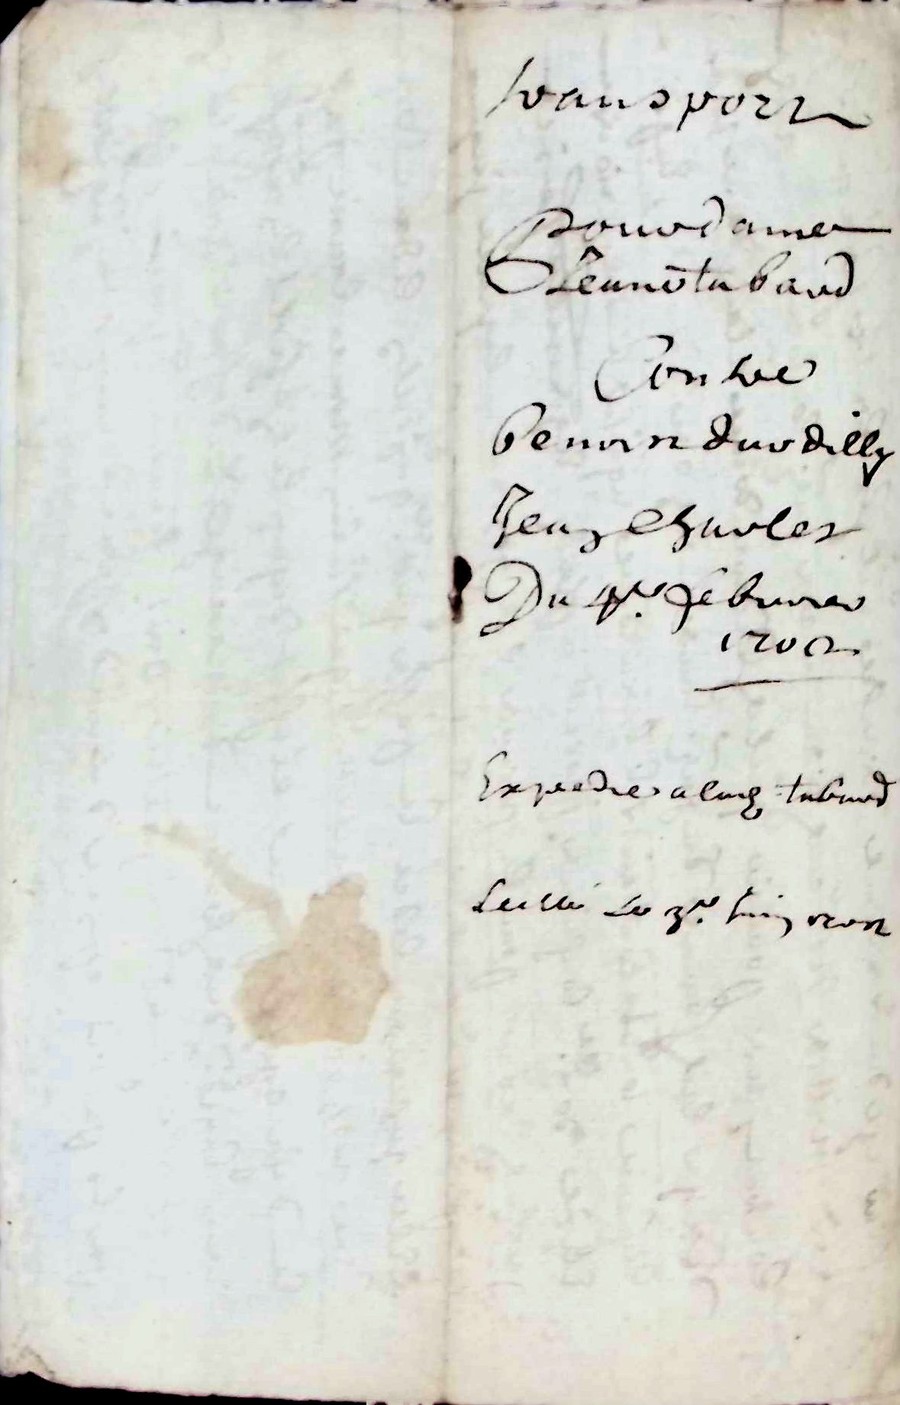 transport
pour dame
Jeanne tabard
Contre
benoist durdilly
Jean Charles
Du 4e. febvrier
1702
Expedie a lad tabard
le 3e. juin 1702